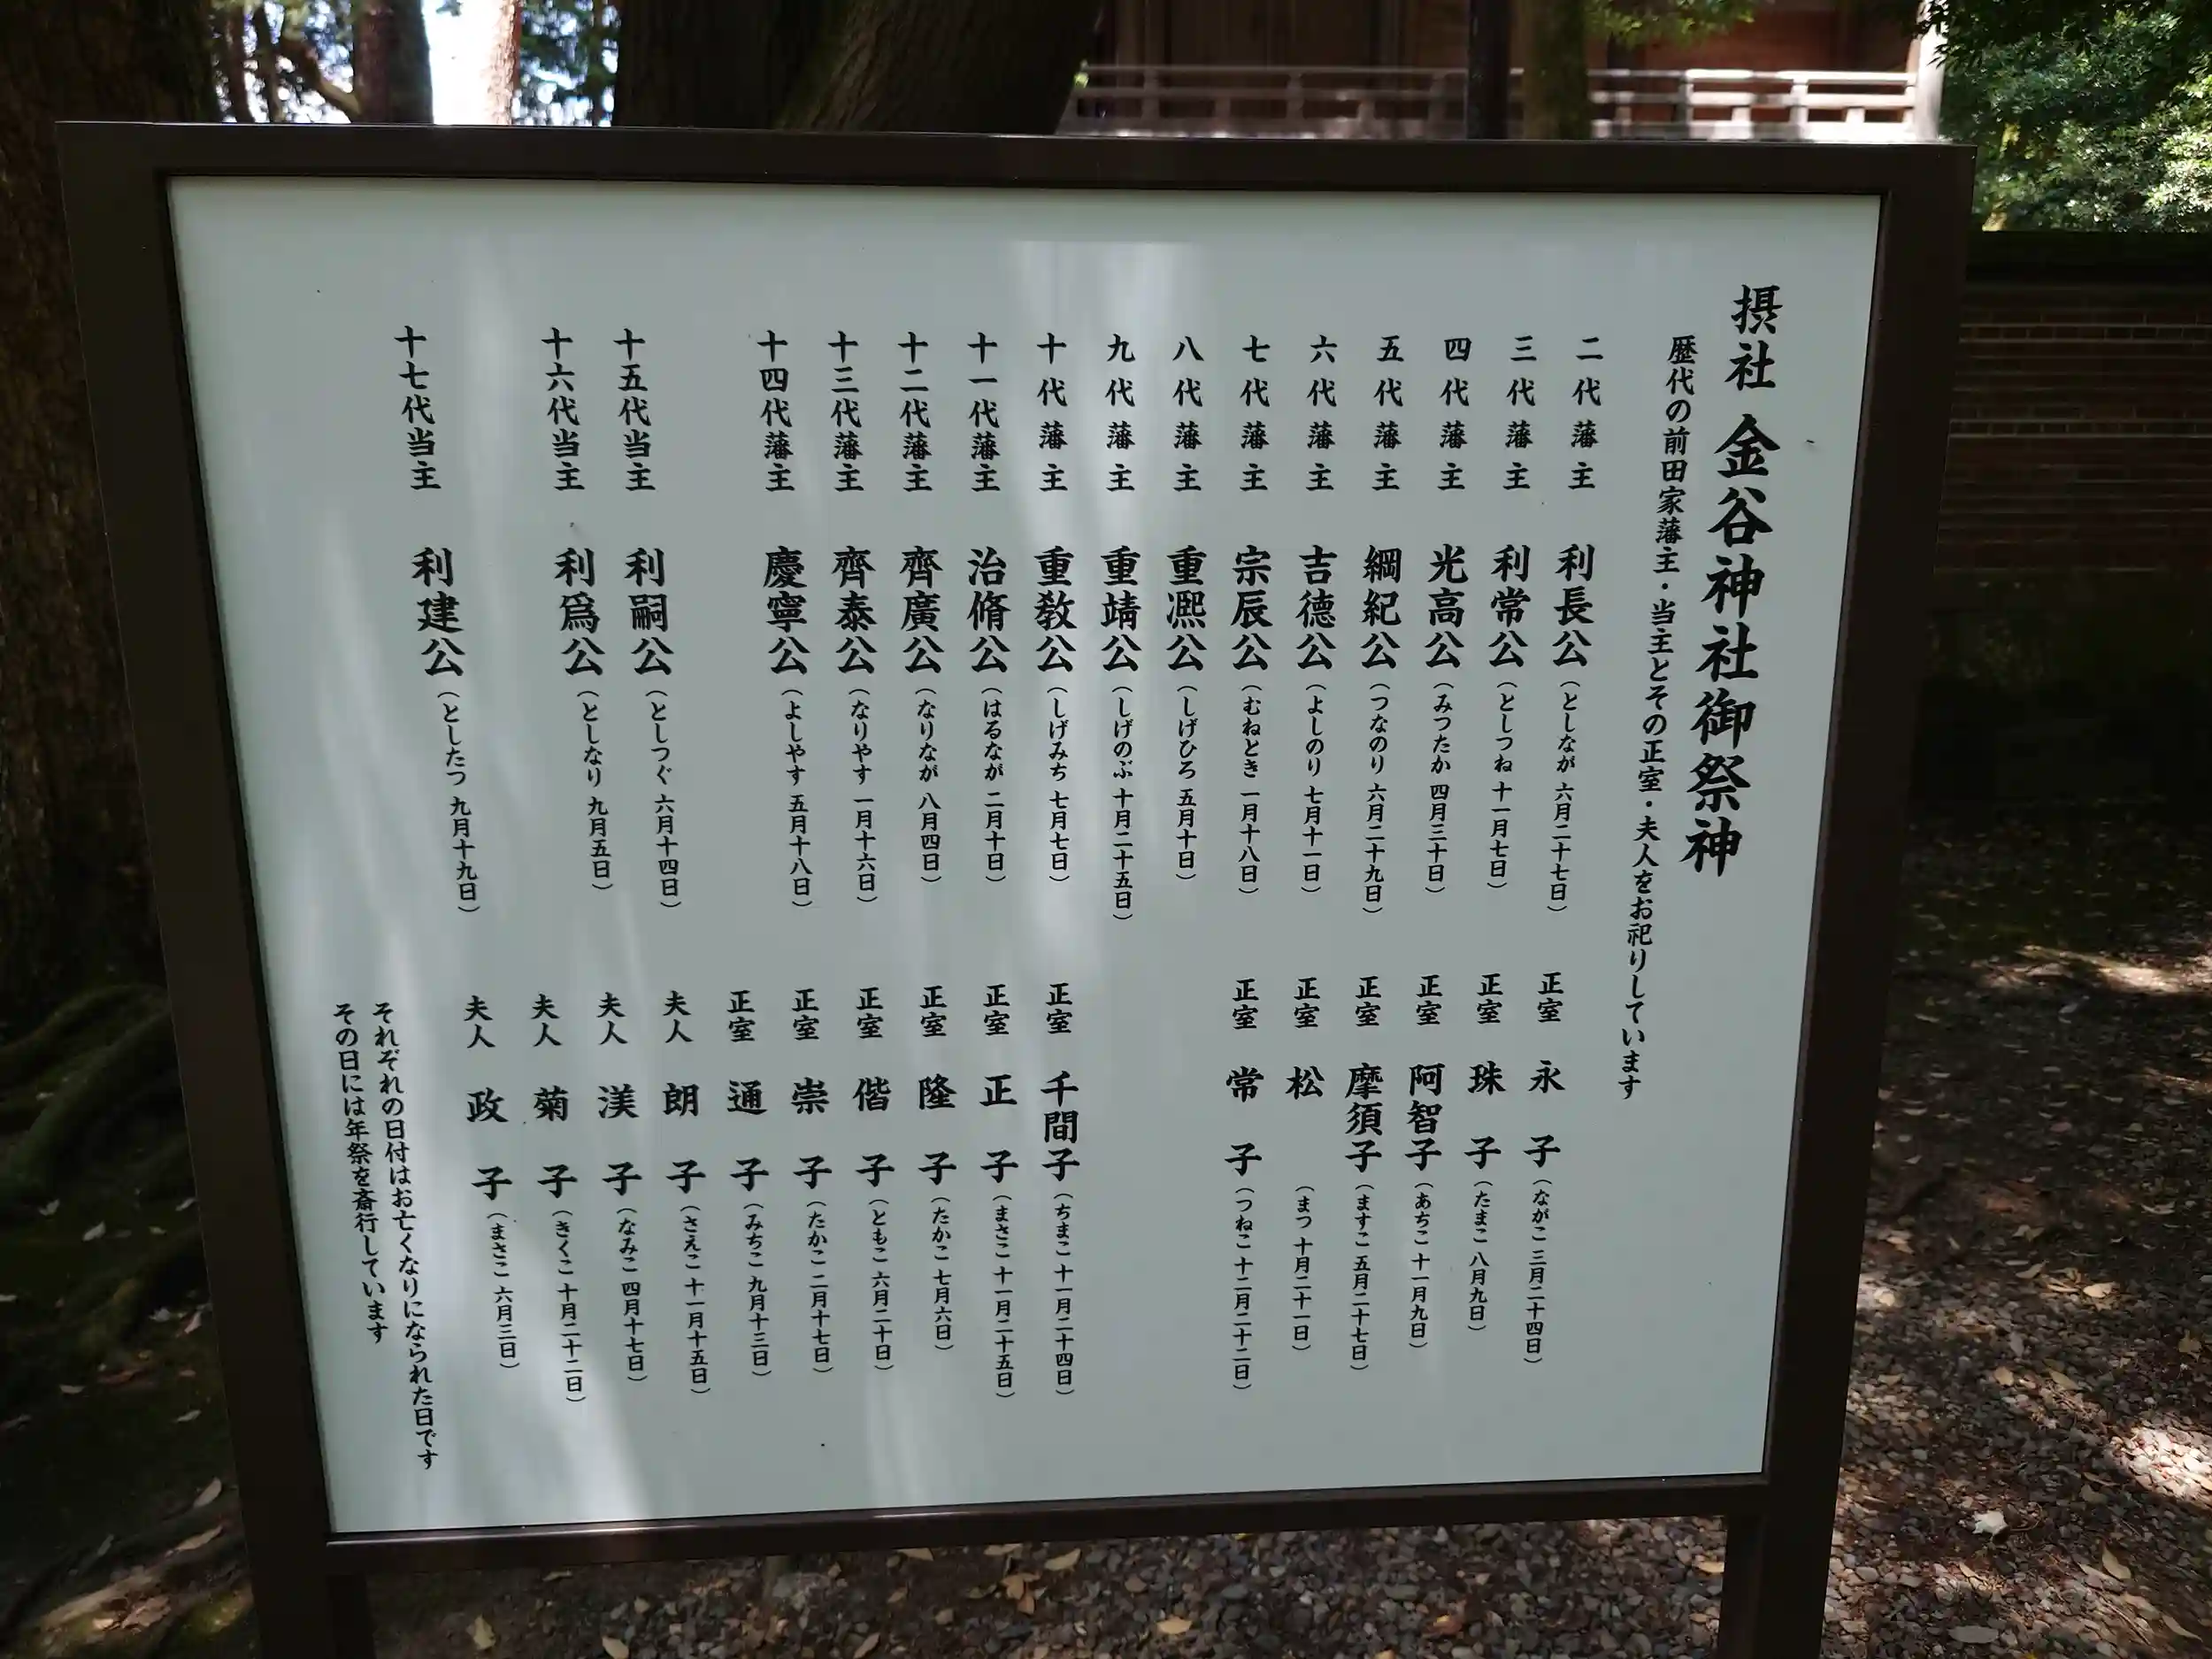 摂社 金谷神社御祭神
歴代の前田家藩主・当主とその正室・夫人をお祀りしています
二代藩主 利長公（としなが 六月二十七日）
三代藩主 利常公（としつね 十一月七日）
四代藩主 光高公（みつたか 四月三十日）
五代藩主 綱紀公（つなのり 六月二十九日）
六代藩主 吉德公（よしのり 七月十一日）
七代藩主 宗辰公（むねとき 一月十八日）
八代藩主 重凞公（しげひろ 五月十日）
九代藩主 重靖公（しげのぶ 十月二十五日）
十代藩主 重教公（しげみち 七月七日）
十一代藩主 治脩公（はるなが 二月十日）
十二代藩主 齊廣公（なりなが 八月四日）
十三代藩主 齊泰公（なりやす 一月十六日）
十四代藩主 慶寧公（よしやす 五月十八日）
十五代当主 利嗣公（としつぐ 六月十四日）
十六代当主 利爲公（としなり 九月五日）
十七代当主 利建公（としたつ 九月十九日）
正室 永子（ながこ 三月二十四日）
正室 珠子（たまこ 八月九日）
正室 阿智子（あちこ 十一月九日）
正室 摩須子（ますこ 五月二十七日）
正室 松（まつ 十月二十一日）
正室 常子（つねこ 十二月二十二日）
正室 千間子（ちまこ 十一月二十四日）
正室 正子（まさこ 十一月二十五日）
正室 隆子（たかこ 七月六日）
正室 偕子（ともこ 六月二十日）
正室 崇子（たかこ 二月十七日）
正室 通子（みちこ 九月十三日）
夫人 朗子（さえこ 十一月十五日）
夫人 渼子（なみこ 四月十七日）
夫人 菊子（きくこ 十月二十二日）
夫人 政子（まさこ 六月三日）
それぞれの日付はお亡くなりになられた日です
その日には年祭を斎行しています